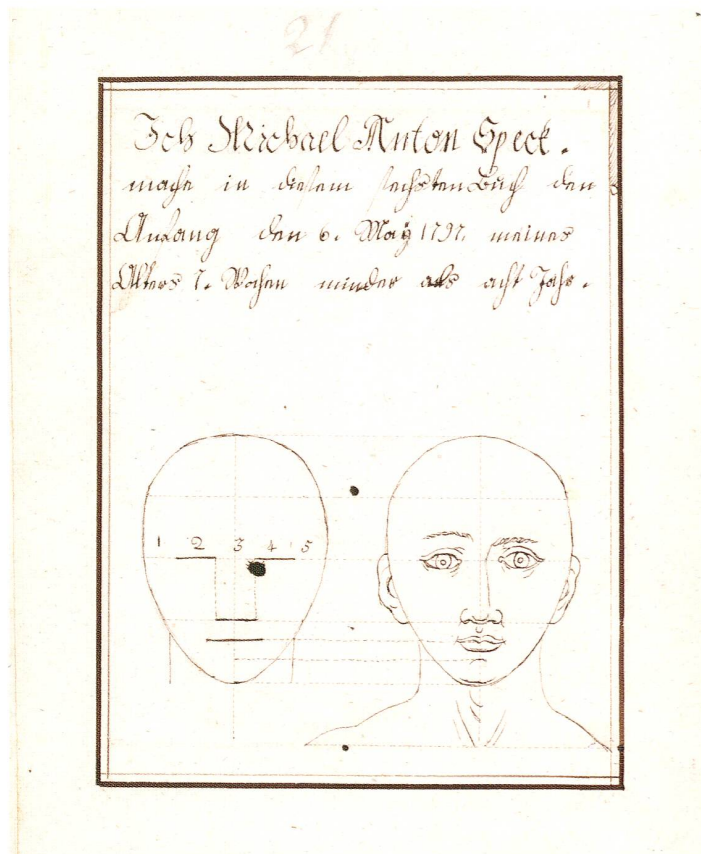 21
Ich Michael Anton Speck.
mache in diesem sechsten Buch den
Anfang den 6. Maÿ 1797. meines
Alters 7. Wochen minder als acht Jahr.
1 2 3 4 5